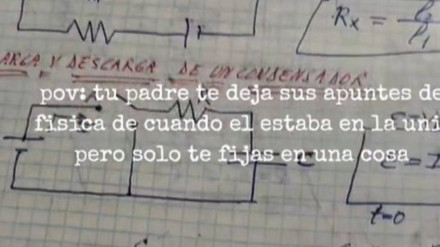 Rx = l2 / l1
CARGA Y DESCARGA DE UN CONDENSADOR
pov: tu padre te deja sus apuntes de
fisica de cuando el estaba en la uni
pero solo te fijas en una cosa
t=0